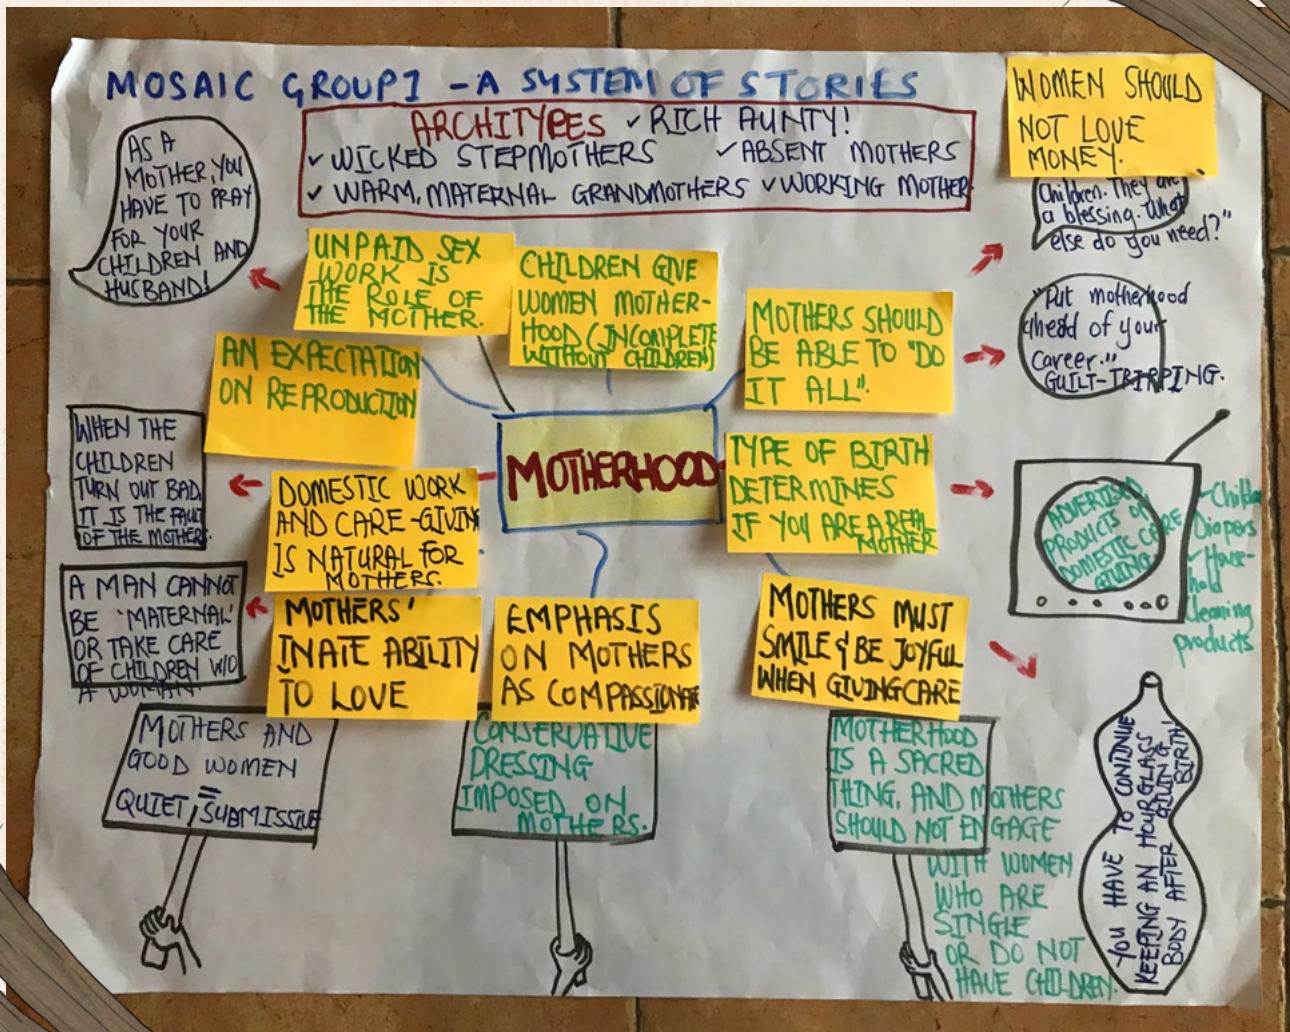 MOSAIC GROUP 1 - A SYSTEM OF STORIES
ARCHITYPES ✓ RICH AUNTY!
✓ WICKED STEPMOTHERS ✓ ABSENT MOTHERS
✓ WARM, MATERNAL GRANDMOTHERS ✓ WORKING MOTHER
WOMEN SHOULD
NOT LOVE
MONEY.
AS A
MOTHER, YOU
HAVE TO PRAY
FOR YOUR
CHILDREN AND
HUSBAND!
UNPAID SEX
WORK IS
THE ROLE OF
THE MOTHER.
CHILDREN GIVE
WOMEN MOTHER-
HOOD (INCOMPLETE
WITHOUT CHILDREN)
MOTHERS SHOULD
BE ABLE TO "DO
IT ALL".
Children. They are
a blessing. What
else do you need?"
"Put motherhood
ahead of your
career."
GUILT-TRIPPING.
AN EXPECTATION
ON REPRODUCTION
WHEN THE
CHILDREN
TURN OUT BAD,
IT IS THE FAULT
OF THE MOTHER.
DOMESTIC WORK
AND CARE-GIVING
IS NATURAL FOR
MOTHERS.
MOTHERHOOD
TYPE OF BIRTH
DETERMINES
IF YOU ARE A REAL
MOTHER
ADVERTISED
PRODUCTS ON
DOMESTIC CARE
GIVING
Diapers
House-
hold
cleaning
products
A MAN CANNOT
BE 'MATERNAL'
OR TAKE CARE
OF CHILDREN W/O
A WOMAN.
MOTHERS'
INATE ABILITY
TO LOVE
EMPHASIS
ON MOTHERS
AS COMPASSIONATE
MOTHERS MUST
SMILE & BE JOYFUL
WHEN GIVING CARE
MOTHERS AND
GOOD WOMEN
=
QUIET, SUBMISSIVE
CONSERVATIVE
DRESSING
IMPOSED ON
MOTHERS.
MOTHERHOOD
IS A SACRED
THING, AND MOTHERS
SHOULD NOT ENGAGE
WITH WOMEN
WHO ARE
SINGLE
OR DO NOT
HAVE CHILDREN.
YOU HAVE TO CONTINUE
KEEPING AN HOURGLASS
BODY AFTER GIVING
BIRTH!